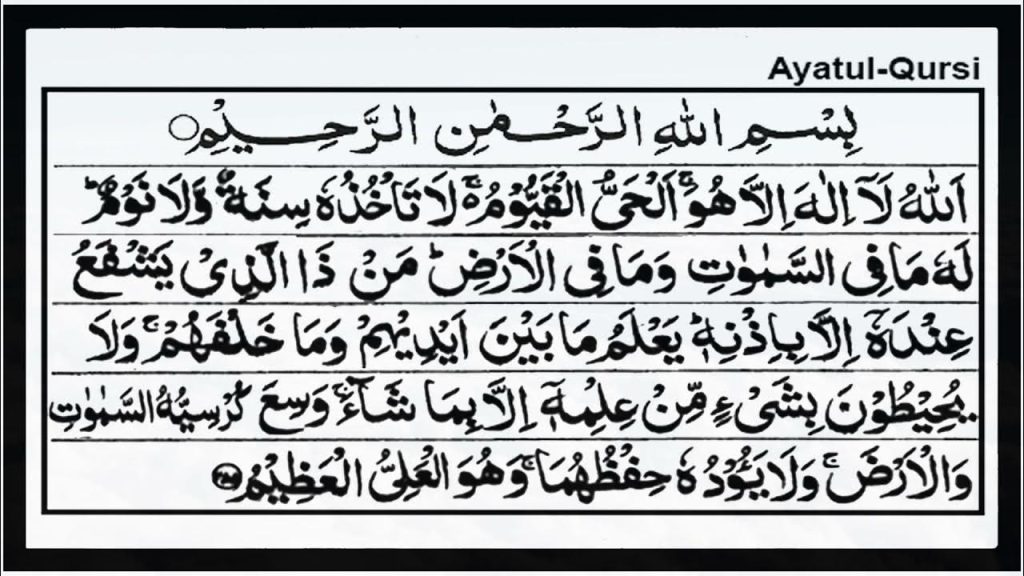 Ayatul-Qursi
بِسْمِ اللهِ الرَّحْمٰنِ الرَّحِيْمِ ○
اَللهُ لَآ اِلٰهَ اِلَّا هُوَ ۚ اَلْحَيُّ الْقَيُّوْمُ ۚ لَا تَاْخُذُهٗ سِنَةٌ وَّلَا نَوْمٌ ؕ
لَهٗ مَا فِى السَّمٰوٰتِ وَمَا فِى الْاَرْضِ ؕ مَنْ ذَا الَّذِىْ يَشْفَعُ
عِنْدَهٗٓ اِلَّا بِاِذْنِهٖ ؕ يَعْلَمُ مَا بَيْنَ اَيْدِيْهِمْ وَمَا خَلْفَهُمْ ۚ وَلَا
يُحِيْطُوْنَ بِشَىْءٍ مِّنْ عِلْمِهٖٓ اِلَّا بِمَا شَآءَ ۚ وَسِعَ كُرْسِيُّهُ السَّمٰوٰتِ
وَالْاَرْضَ ۚ وَلَا يَـُٔوْدُهٗ حِفْظُهُمَا ۚ وَهُوَ الْعَلِىُّ الْعَظِيْمُ ۲۵۵